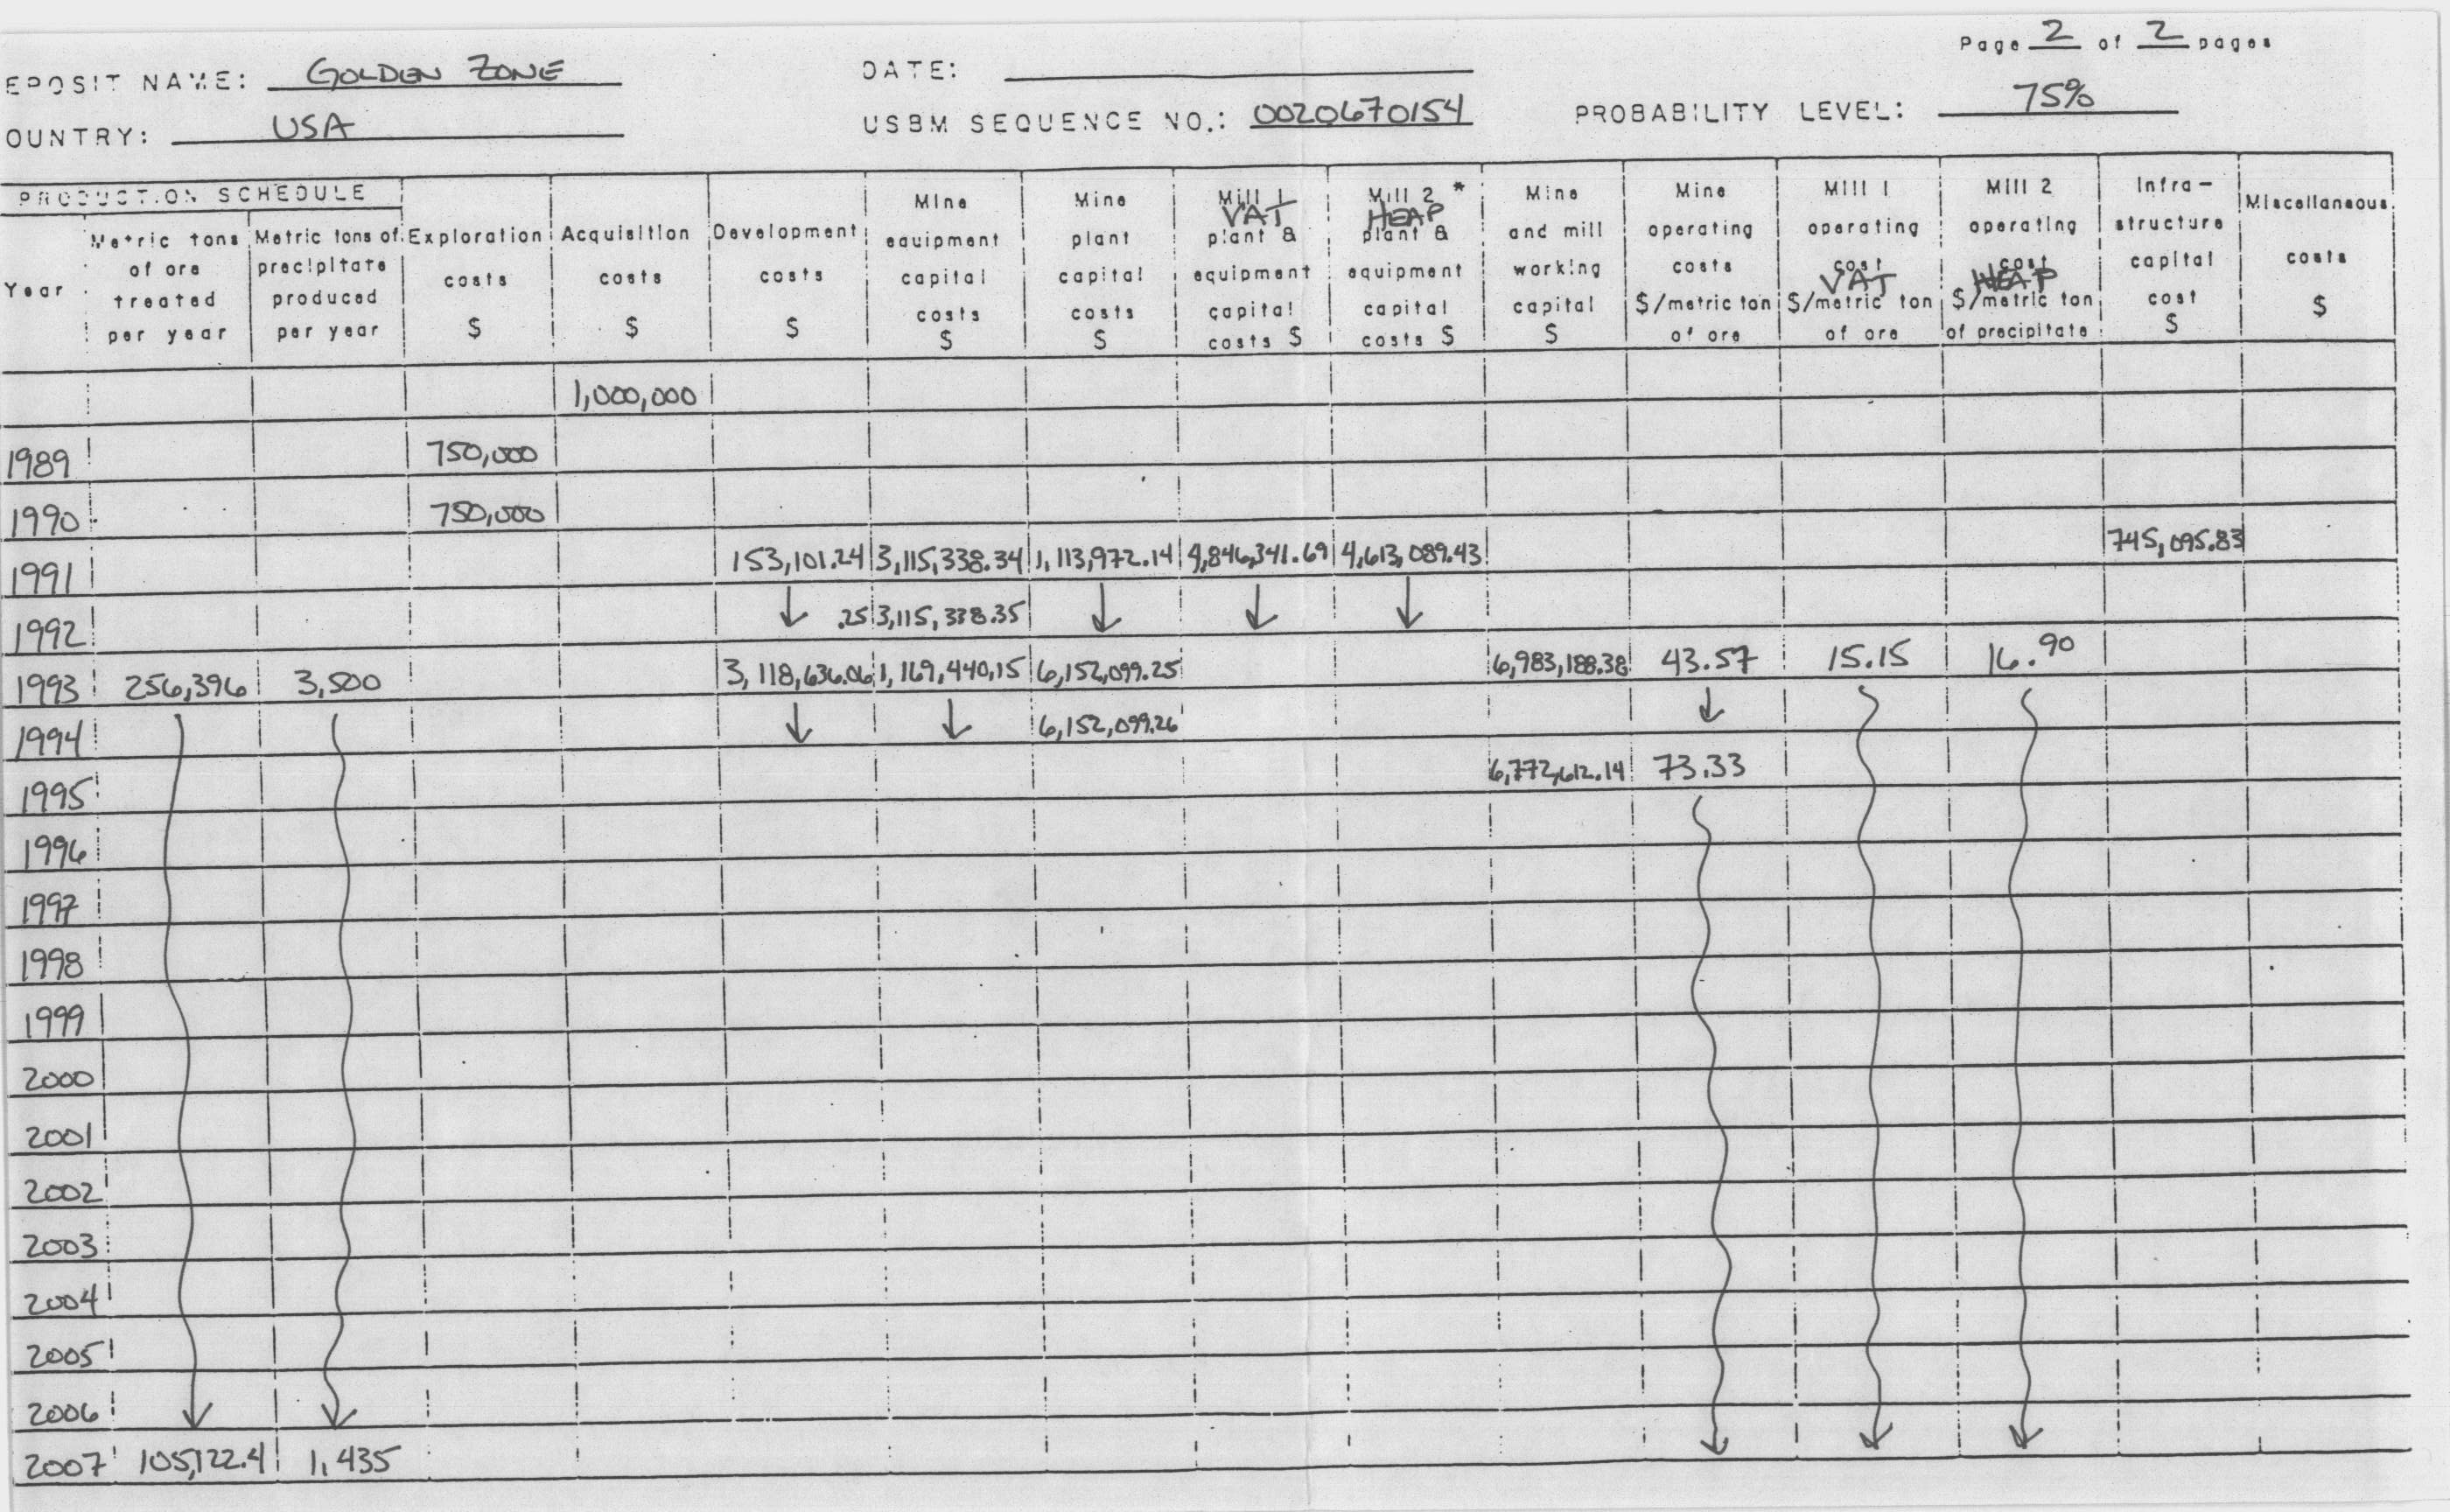 Page 2 of 2 pages
EPOSIT NAME: GOLDEN ZONE DATE:
OUNTRY: USA USBM SEQUENCE NO.: 0020670154 PROBABILITY LEVEL: 75%
PRODUCTION SCHEDULE
Year
Metric tons of ore treated per year
Metric tons of precipitate produced per year
Exploration costs $
Acquisition costs $
Development costs $
Mine equipment capital costs $
Mine plant capital costs $
Mill 1 VAT plant & equipment capital costs $
Mill 2 * HEAP plant & equipment capital costs $
Mine and mill working capital $
Mine operating costs $/metric ton of ore
Mill 1 operating cost VAT $/metric ton of ore
Mill 2 operating cost HEAP $/metric ton of precipitate
Infra- structure capital cost $
Miscellaneous costs $
1,000,000
1989 750,000
1990 750,000
1991 153,101.24 3,115,338.34 1,113,972.14 4,846,341.69 4,613,089.43 745,095.83
1992 ↓ .25 3,115,338.35 ↓ ↓ ↓
1993 256,396 3,500 3,118,636.06 1,169,440.15 6,152,099.25 6,983,188.38 43.57 15.15 16.90
1994 ↓ ↓ 6,152,099.26 ↓
1995 6,772,612.14 73.33
1996
1997
1998
1999
2000
2001
2002
2003
2004
2005
2006
2007 105,122.4 1,435